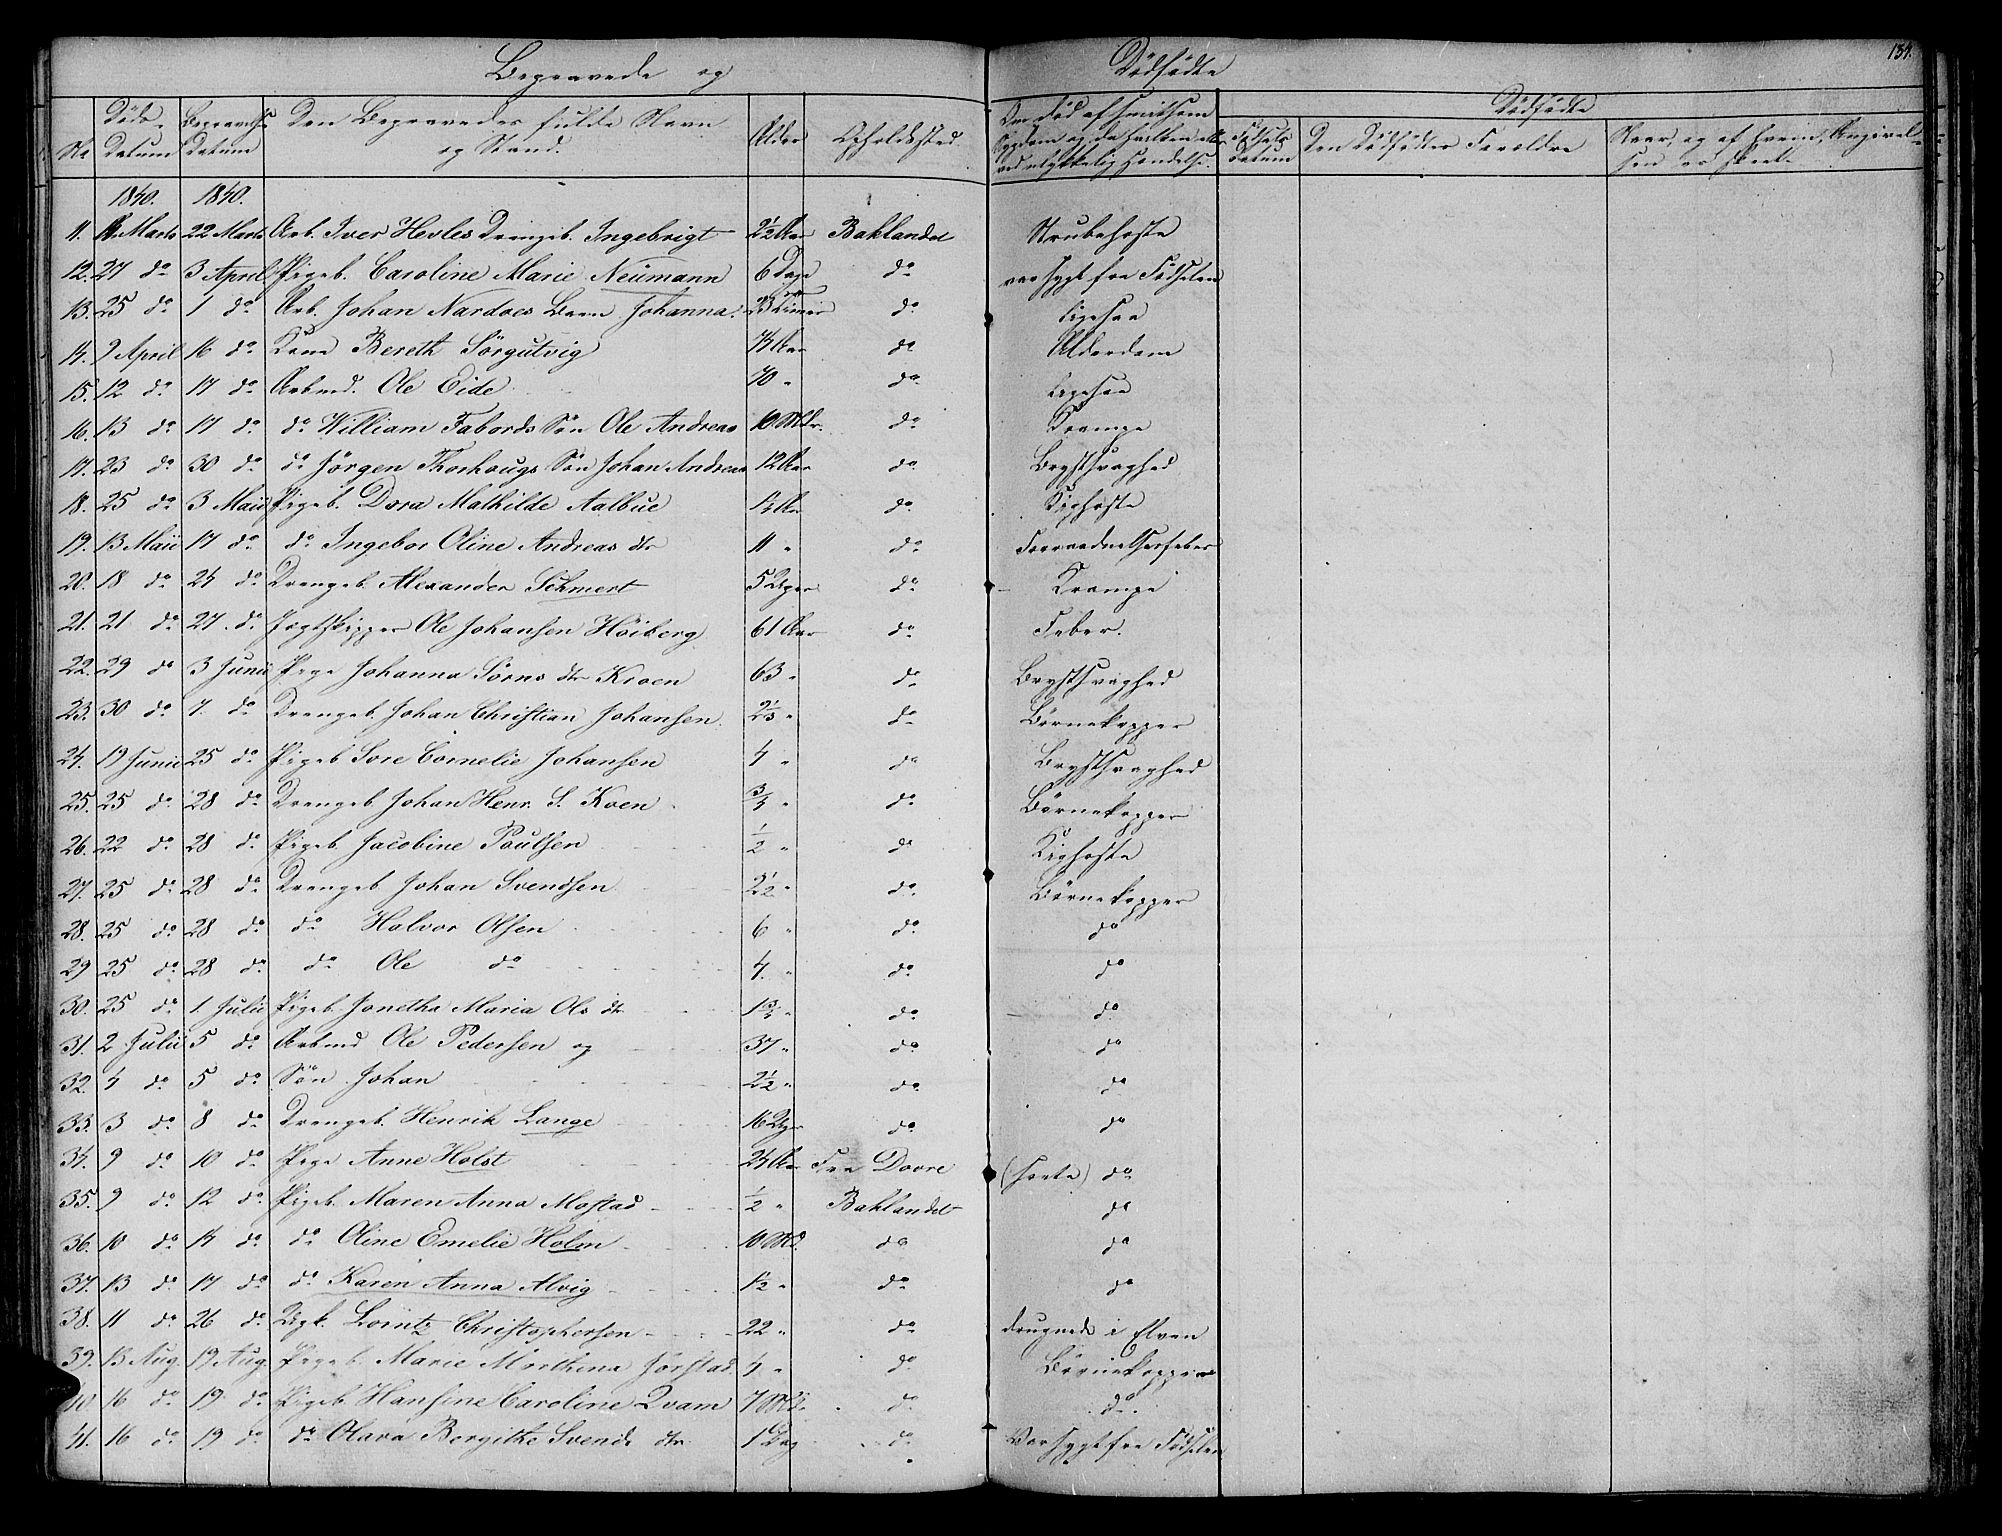 Begravede og Dødfødte
134.
No
Døds Datum
Begravelses Datum
Den Begravedes fulde Navn og Stand.
Alder
Opholdssted
Om død af smitsom Sygdom og da hvilken eller ved ulykkelig Hændelse.
Dødfødte
Fødsels Datum
Den Dødfødtes Forældre
Naar, og af hvem, Angivelsen er skeet
1840. 1840.
11. Marts 22 Marts Arb. Iver Hevles Drengeb. Ingebrigt 2½ Aar Baklandet Strubehoste
12. 27 do 3 April Pigeb. Caroline Marie Neümann 6 Dage do var sygt fra Fødselen
13. 25 do 1 do Arb. Johan Nardoes Barn Johanna. 23 Timer do ligesaa
14. 9 April 16 do Kone Bereth Sörgutvig 74 Aar do Alderdom
15. 12 do 17 do Arbmd. Ole Eide 70 " do ligesaa
16. 13 do 17 do do William Fabords Sön Ole Andreas 10 Mdr. do Krampe
17. 23 do 30 do do Jörgen Thorhougs Sön Johan Andreas 12 Aar do Brystsvaghed
18. 25 do 3 Maii Pigeb. Dora Mathilde Aalbue 1½ Aar do Kighoste
19. 13 Maii 17 do do Ingebor Oline Andreas dtr 11 " do Forraadnelsesfeber
20. 18 do 24 do Drengeb Alexander Schmert 5 Uger do Krampe
21. 21 do 27. do Jægtskipper Ole Johansen Höiberg 61 Aar do Feber.
22. 29 do 3 Junii Pige Johanna Sörns dtr Kroen 63 " do Brystsvaghed
23. 30 do 7. do Drengeb. Johan Christian Johansen. 2⅓ " do Børnekopper
24. 19 Junii 25 do Pigeb Sore Cornelie Johansen 4 " do Brystsvaghed
25. 25 do 28 do Drengeb Johan Henr. S. Koen ¾ " do Børnekopper
26. 22 do 28 do Pigeb Jacobine Poulsen ½ " do Kighoste
27. 25 do 28 do Drengeb Johan Svendsen 2½ " do Børnekopper
28. 25 do 28 do do Halvor Olsen 6 " do do
29 25 do 28 do do Ole do 4. " do do
30. 25 do 1. Julii Pigeb. Jonetha Maria Ols dtr 1¾ " do do
31. 2 Julii 5 do Arbmd Ole Pedersen og 37 " do do
32. 4 do 5 do Sön Johan 2½ " do do
33. 3 do 8 do Drengeb. Henrik Lange 16 Uger do do
34. 9 do 10 do Pige Anne Holst 24 Aar Fra Dovre (sorte) do
35. 9 do 12 do Pigeb. Maren Anna Mostad ½ " Baklandet do
36. 10 do 14 do do Oline Emelie Holm 10 Md. do do
37. 13 do 17 do do Karen Anna Alvig 1½ " do do
38. 11 do 26 do Ugk. Lorntz Christophersen 22 " do druknede i Elven
39. 13 Aug. 19 Aug. Pigeb. Marie Marthina Jörstad. 4 " do Børnekopper
40 16 do 19 do Pigeb Hansine Caroline Qvam 7 Md. do do.
41. 16 do 19 do do Olava Bergithe Svends dtr 1 Dag do Var sygt fra Fødselen